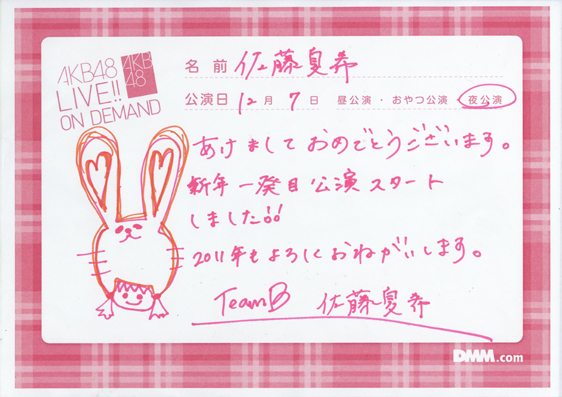 AKB48
LIVE!!
ON DEMAND
AKB
48
名前 佐藤夏希
公演日 12月 7日 昼公演・おやつ公演・夜公演
あけましておめでとうございます。
新年一発目公演スタート
しました!!
2011年もよろしくおねがいします。
TeamB 佐藤夏希
DMM.com